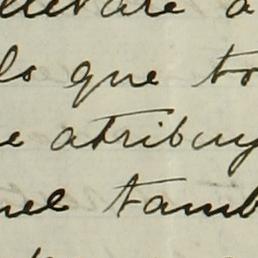 llevare a
lo que to
e atribuy
nel tamb